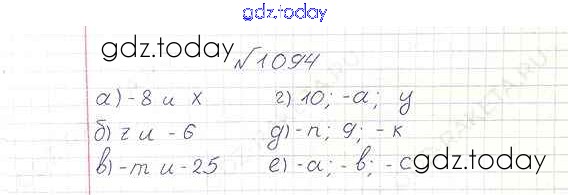 gdz.today
gdz.today
№1094
а) -8 и x г) 10; -a; y
б) z и -6 д) -n; 9; -k
в) -m и -25 е) -a; -b; -c
gdz.today